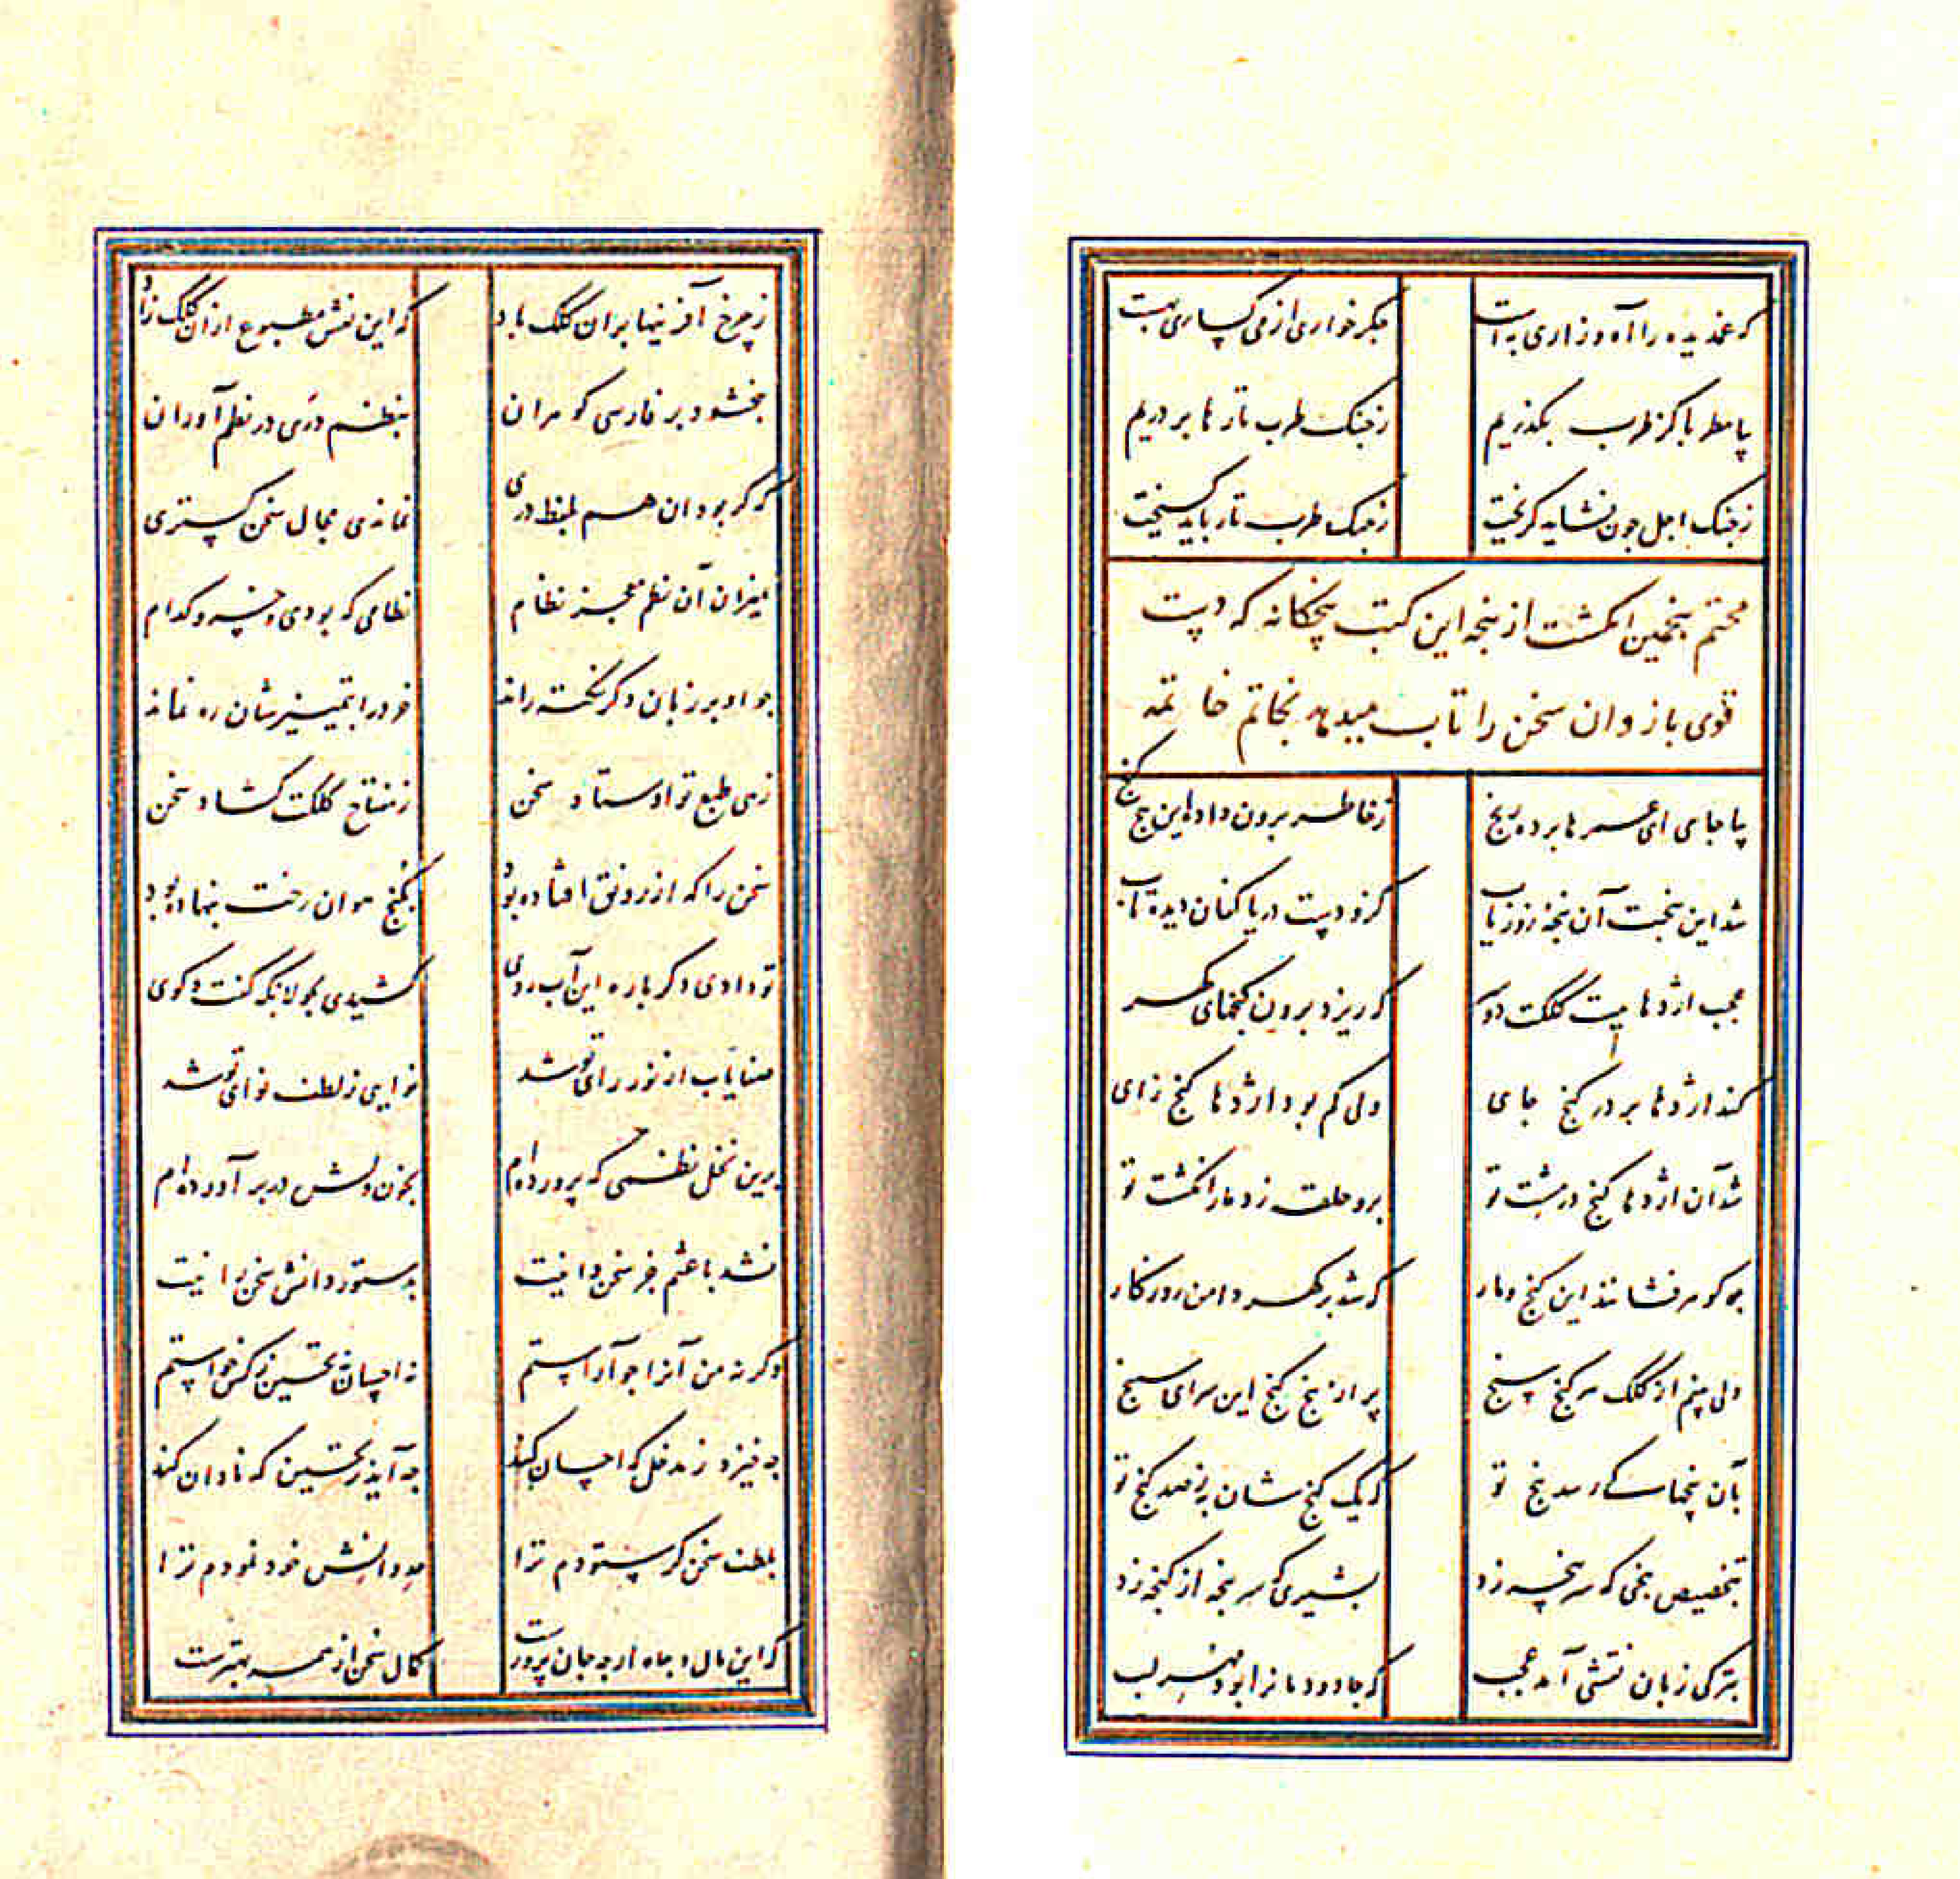 که غمدیده را آه و زاری به است جگرخواری از میگساری به است
بیا مطربا کز طرب بگذریم ز چنگ طرب تارها بر دریم
ز چنگ اجل چون نشاید گریخت ز چنگ طرب تار باید گسیخت
مختم پنجمین انگشت از پنجه این کتب پنجگانه که دست
قوی بازوان سخن را تاب میدهد بخاتم خاتمه
بیا جامی ای عمرها برده رنج ز خاطر برون داده این پنج گنج
شد این پنجت آن پنجه زوریاب کزو دست دریا کفان دیده تاب
عجب اژدهاییست کلکت دو سر که ریزد برون گنجهای گهر
کند اژدها بر در گنج جای ولی کم بود اژدها گنج زای
شد آن اژدها گنج در مشت تو برو حلقه زد مار انگشت تو
چو گوهر فشاند این گنج و مار که شد پر گهر دامن روزگار
ولی بینم از کلک هر گنج سنج پر از پنج گنج این سرای سپنج
بآن پنجها کی رسد پنج تو که یک گنجشان به ز صد گنج تو
بتخصیص پنجی که سر پنجه زد بشیری که سر پنجه از گنجه زد
بترکی زبان نقشی آمد عجب که جادو دمانرا بود مهر لب
ز چرخ آفرینها بران کلک باد که این نقش مطبوع ازان کلک زاد
ببخشود بر فارسی گوهران بنظم دری در نظم آوران
که گر بودی آن هم بلفظ دری نماندی مجال سخن گستری
بمیزان آن نظم معجز نظام نظامی که بودی و خسرو کدام
چو او بر زبان دگر نکته راند خرد را بتمییزشان ره نماند
زهی طبع تو اوستاد سخن ز مفتاح کلکت گشاد سخن
سخن را که از رونق افتاده بود بکنج هوان رخت بنهاده بود
تو دادی دگر باره این آب روی کشیدی بجولانگه گفت و گوی
صفایاب از نور رای تو شد نوایی ز لطف نوای تو شد
برین نخل نظمی که پرورده ام بخون دلش در بر آورده ام
نشد باعثم جز سخن دانیت بدستور دانش سخن رانیت
وگرنه من آنرا چو آراستم نه احسان نه تحسین ز کس خواستم
چه خیزد ز مدخل که احسان کند چه آید ز تحسین که نادان کند
بلطف سخن گر ستودم ترا مددانش خود نمودم ترا
که این مال و جاه ار چه جان پرورست کمال سخن از همه بهترست